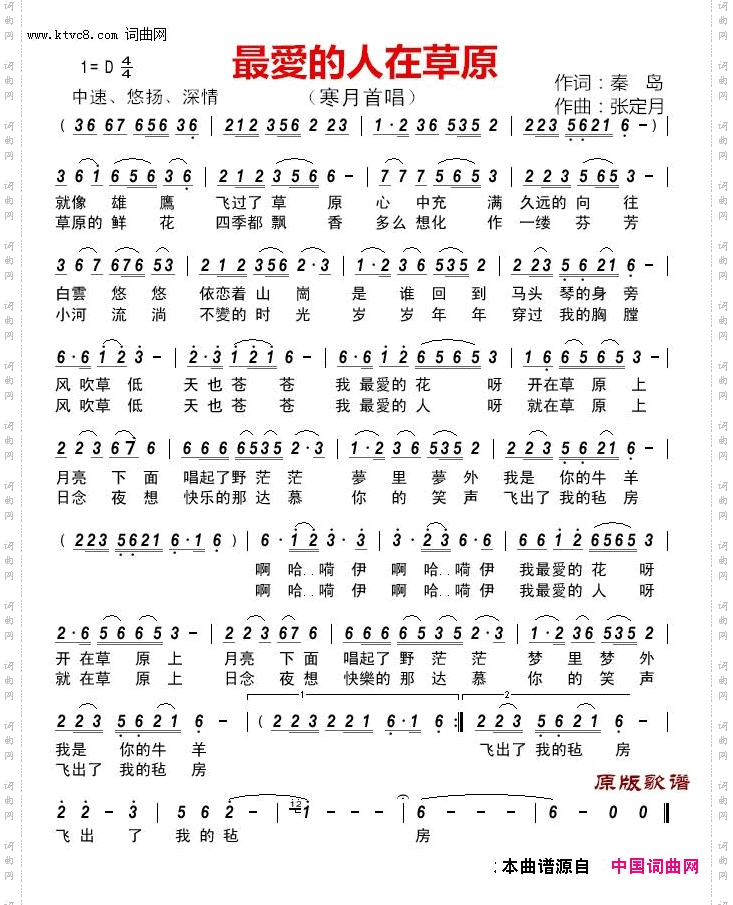 www.ktvc8.com 词曲网
最愛的人在草原
1=D 4/4
中速、悠扬、深情
（寒月首唱）
作词：秦 岛
作曲：张定月
( 3 6 6 7 6 5 6 3 6 | 2 1 2 3 5 6 2 2 3 | 1 · 2 3 6 5 3 5 2 | 2 2 3 5 6 2 1 6 - )
3 6 1 6 5 6 3 6 | 2 1 2 3 5 6 6 - | 7 7 7 5 6 5 3 | 2 2 3 5 6 5 3
就像 雄 鷹 飞过了 草 原 心 中充 满 久远的 向 往
草原的 鲜 花 四季都 飘 香 多么 想化 作 一缕 芬 芳
3 6 7 6 7 6 5 3 | 2 1 2 3 5 6 2 · 3 | 1 · 2 3 6 5 3 5 2 | 2 2 3 5 6 2 1 6
白雲 悠 悠 依恋着 山 崗 是 谁 回 到 马头 琴的身 旁
小河 流 淌 不變的 时 光 岁 岁 年 年 穿过 我的胸 膛
6 · 6 1 2 3 - | 2 · 3 1 2 1 6 - | 6 · 6 1 2 6 5 6 5 3 | 1 6 6 5 6 5 3 -
风 吹草 低 天 也 苍 苍 我 最愛的 花 呀 开在草 原 上
风 吹草 低 天 也 苍 苍 我 最愛的 人 呀 就在草 原 上
2 2 3 6 7 6 | 6 6 6 6 5 3 5 2 · 3 | 1 · 2 3 6 5 3 5 2 | 2 2 3 5 6 2 1 6 -
月亮 下 面 唱起了野 茫 茫 夢 里 夢 外 我是 你的牛 羊
日念 夜 想 快乐的那 达 慕 你 的 笑 声 飞出了 我的毡 房
( 2 2 3 5 6 2 1 6 · 1 6 ) | 6 · 1 2 3 · 3 | 3 · 2 3 6 · 6 | 6 6 1 2 6 5 6 5 3
啊 哈..嗬 伊 啊 哈..嗬伊 我最愛的 花 呀
啊 哈..嗬 伊 啊 哈..嗬伊 我最愛的 人 呀
2 · 6 5 6 6 5 3 - | 2 2 3 6 7 6 | 6 6 6 6 5 3 5 2 · 3 | 1 · 2 3 6 5 3 5 2
开 在草 原 上 月亮 下 面 唱起了 野 茫 茫 梦 里 梦 外
就 在草 原 上 日念 夜 想 快樂的 那 达 慕 你 的 笑 声
1 2
2 2 3 5 6 2 1 6 - | ( 2 2 3 2 2 1 6 · 1 6 :| 2 2 3 5 6 2 1 6 -
我是 你的牛 羊 飞出了 我的毡 房
飞出了 我的毡 房
原版歌谱
2 2 - 3 | 5 6 2 - | 12 1 - - - | 6 - - - | 6 - 0 0 |
飞 出 了 我 的 毡 房
:本曲谱源自 中国词曲网